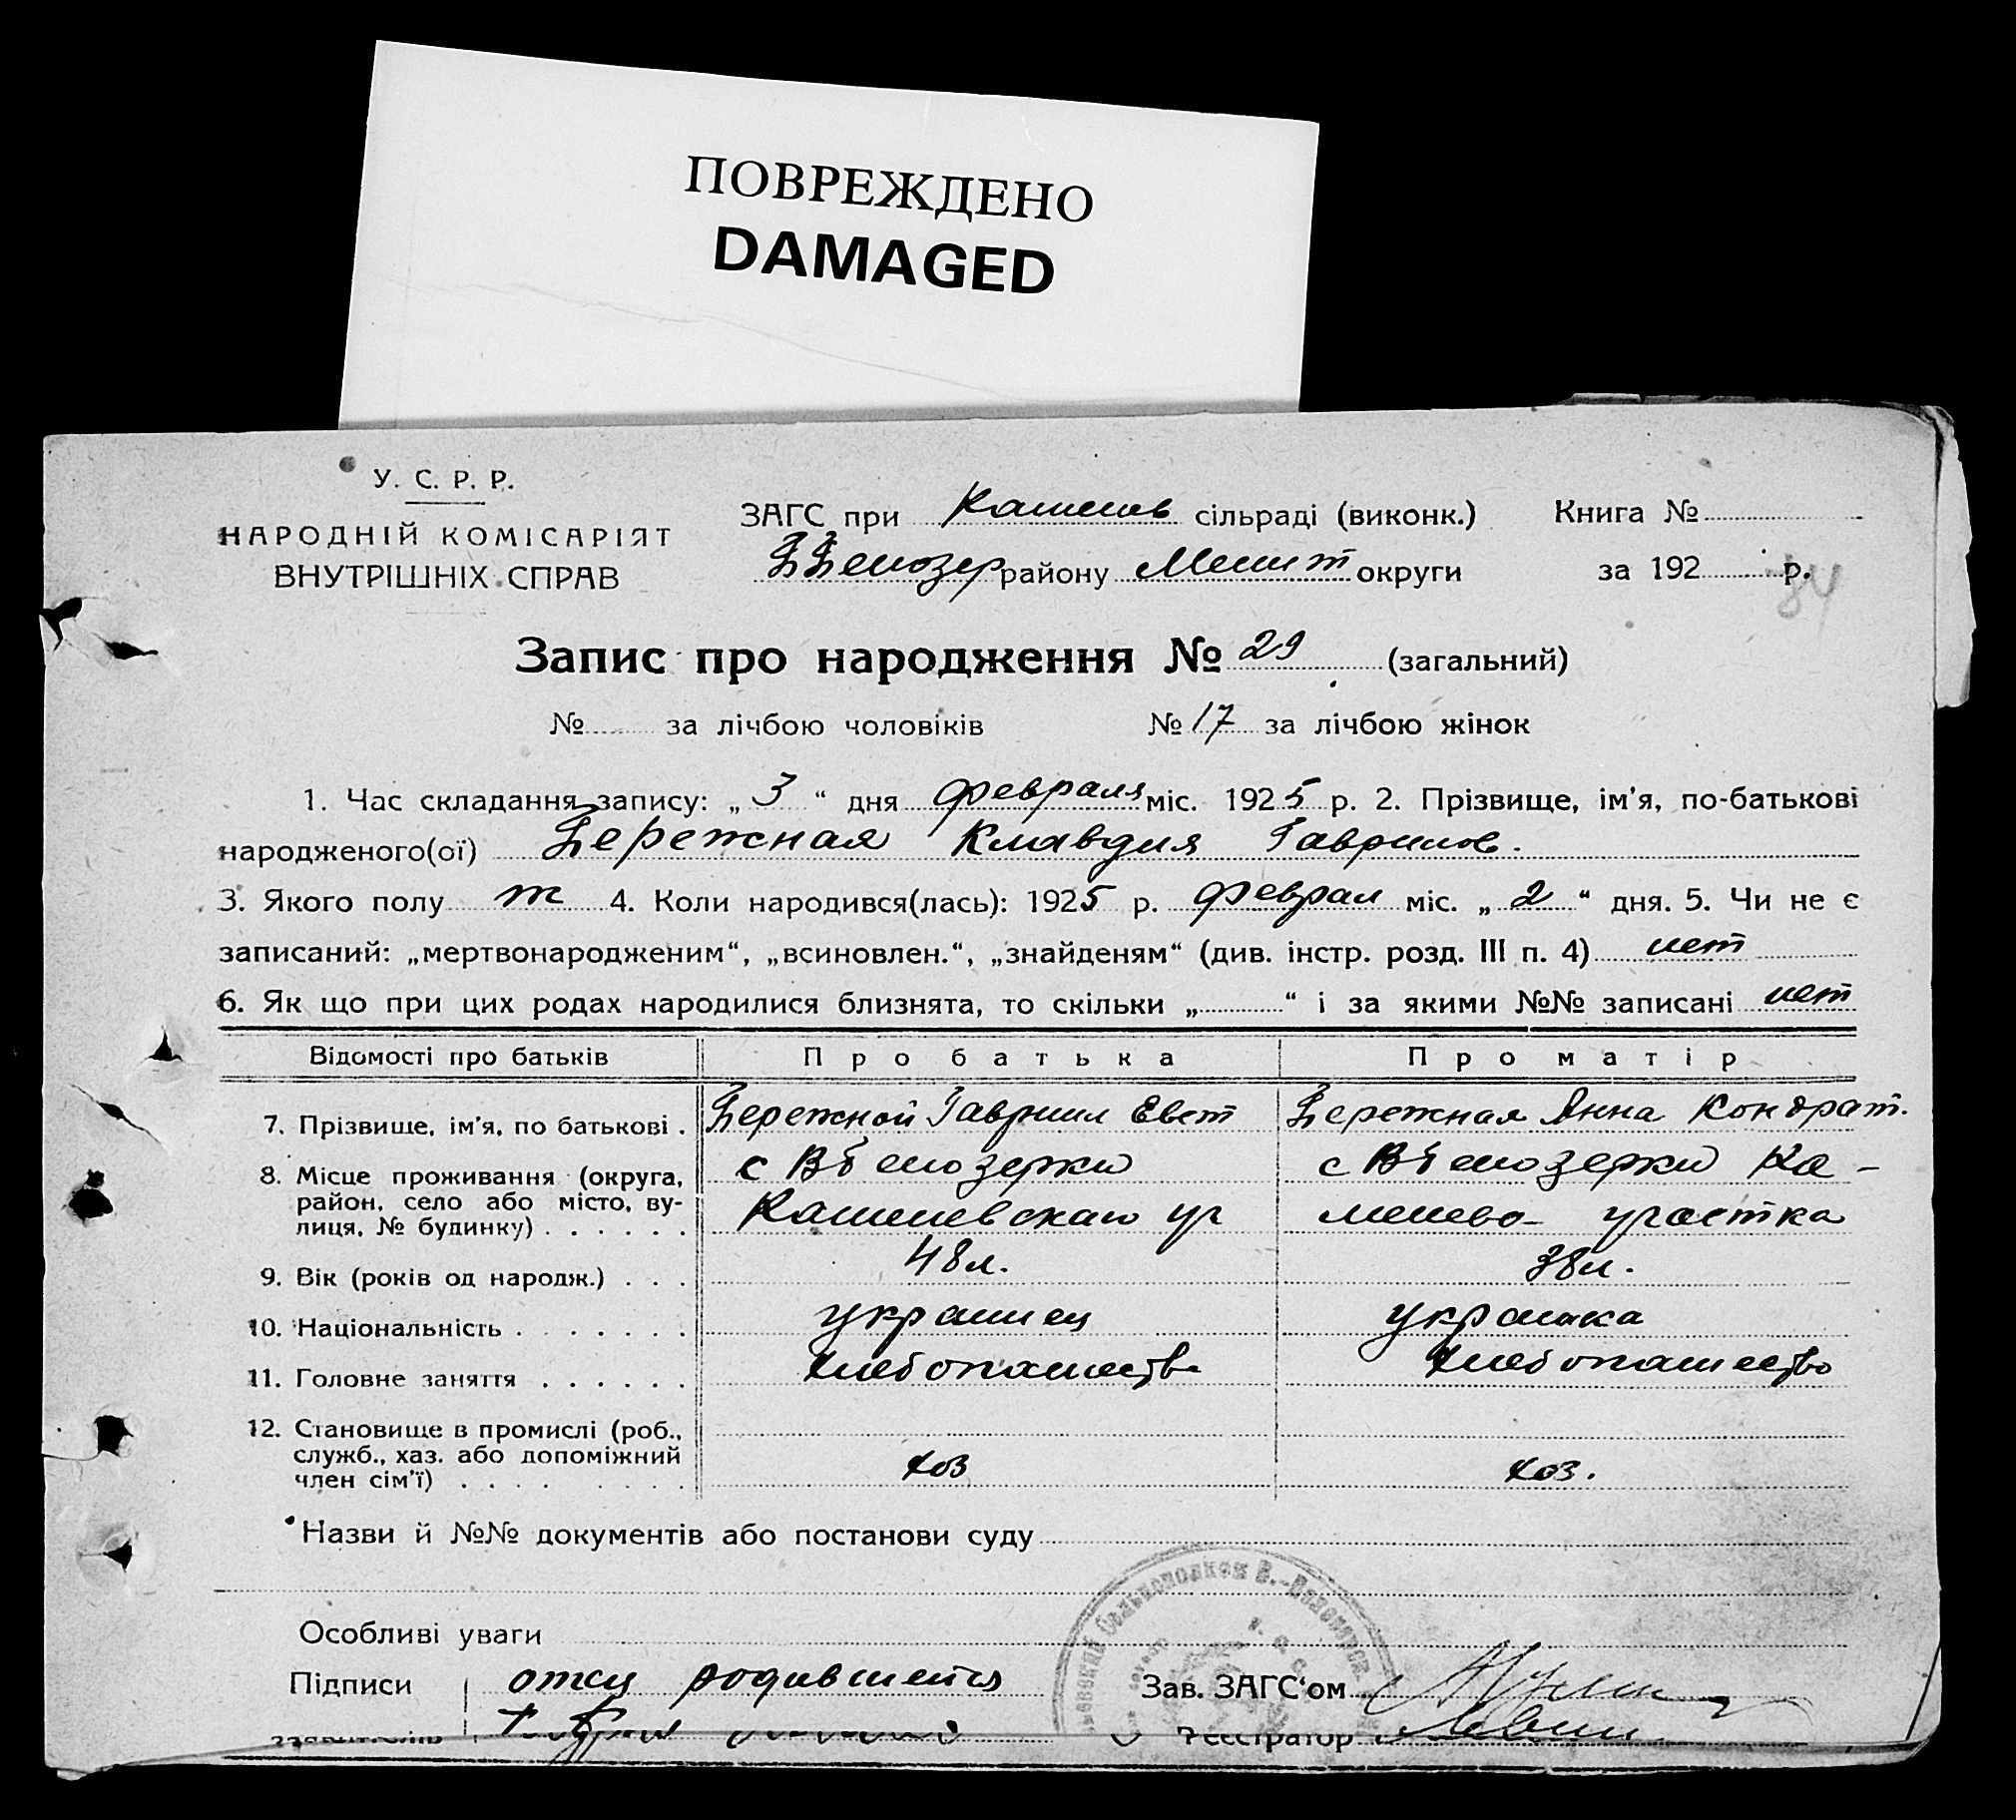 ПОВРЕЖДЕНО
DAMAGED
У. С. Р. Р.
НАРОДНІЙ КОМІСАРІЯТ
ВНУТРІШНІХ СПРАВ
ЗАГС при сільраді (виконк.)
району округи
Книга №
за 192 р.
84
Запис про народження № 29 (загальний)
№ за лічбою чоловіків № 17 за лічбою жінок
1. Час складання запису: „ 3 “ дня февраля міс. 1925 р. 2. Прізвище, ім'я, по-батькові
народженого(ої) Бережная Клавдия Гаврилов.
3. Якого полу ж 4. Коли народився(лась): 1925 р. феврал міс. „ 2 “ дня. 5. Чи не є
записаний: „мертвонародженим“, „всиновлен.“, „знайденям“ (див. інстр. розд. III п. 4) нет
6. Як що при цих родах народилися близнята, то скільки „ “ і за якими №№ записані нет
Відомості про батьків Про батька Про матір
7. Прізвище, ім'я, по батькові . Бережной Гавриил Евст Бережная Анна Кондрат.
8. Місце проживання (округа, с Вбелозерки с Вбелозерки Ка-
район, село або місто, ву-
лиця, № будинку) . . . . . . менево- участка
9. Вік (років од народж.) . . . 48 л. 38 л.
10. Національність . . . . . . . украинец украинка
11. Головне заняття . . . . . . хлебопашество хлебопашество
12. Становище в промислі (роб.,
служб., хаз. або допоміжний
член сім'ї) . . . . . . . . хоз хоз.
Назви й №№ документів або постанови суду
Особливі уваги
Підписи отец родившейся Зав. ЗАГС'ом
заявителів Реєстратор